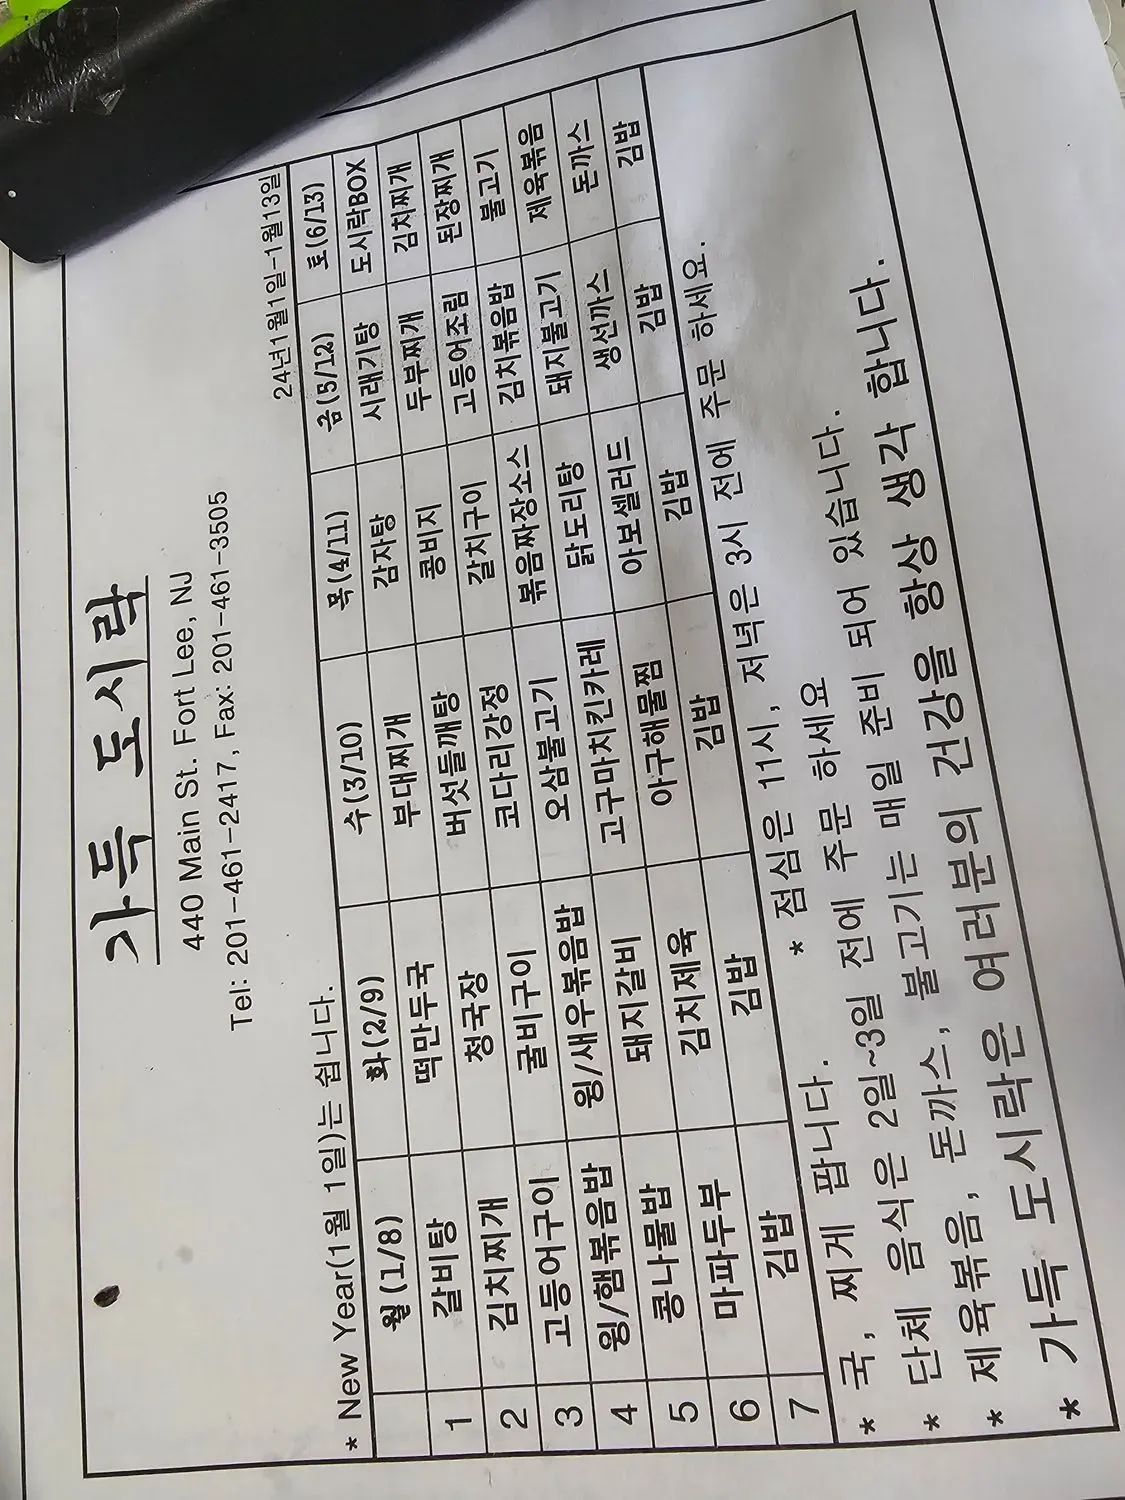 가득 도시락
440 Main St. Fort Lee, NJ
Tel: 201-461-2417, Fax: 201-461-3505
* New Year(1월 1일)는 쉽니다. 24년1월1일-1월13일
월(1/8) 화(2/9) 수(3/10) 목(4/11) 금(5/12) 토(6/13)
1 갈비탕 떡만두국 부대찌개 감자탕 시래기탕 도시락BOX
2 김치찌개 청국장 버섯들깨탕 콩비지 두부찌개 김치찌개
3 고등어구이 굴비구이 코다리강정 갈치구이 고등어조림 된장찌개
4 윙/햄볶음밥 윙/새우볶음밥 오삼불고기 볶음짜장소스 김치볶음밥 불고기
5 콩나물밥 돼지갈비 고구마치킨카레 닭도리탕 돼지불고기 제육볶음
6 마파두부 김치제육 아구해물찜 아보셀러드 생선까스 돈까스
7 김밥 김밥 김밥 김밥 김밥 김밥
* 국, 찌게 팝니다. * 점심은 11시, 저녁은 3시 전에 주문 하세요.
* 단체 음식은 2일~3일 전에 주문 하세요
* 제육볶음, 돈까스, 불고기는 매일 준비 되어 있습니다.
* 가득 도시락은 여러분의 건강을 항상 생각 합니다.